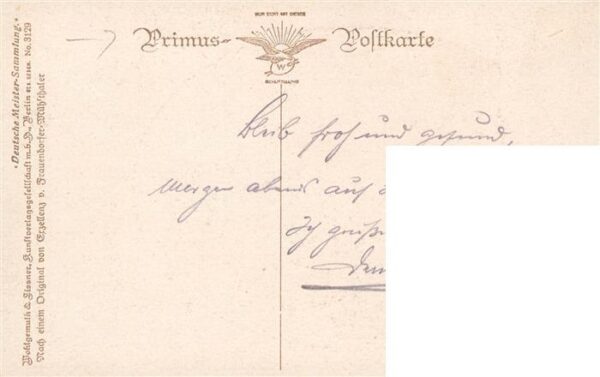 NUR ECHT MIT DIESER
Primus- Postkarte
W
SCHUTZMARKE
Bleib froh und gesund,
Morgen abend auf
Ich grüße
·Deutsche Meister-Sammlung.·
Wohlgemuth & Lissner, Kunstverlagsgesellschaft m.b.H., Berlin No. 3129
Nach einem Original von Exzellenz v. Frauendorfer-Mühlthaler